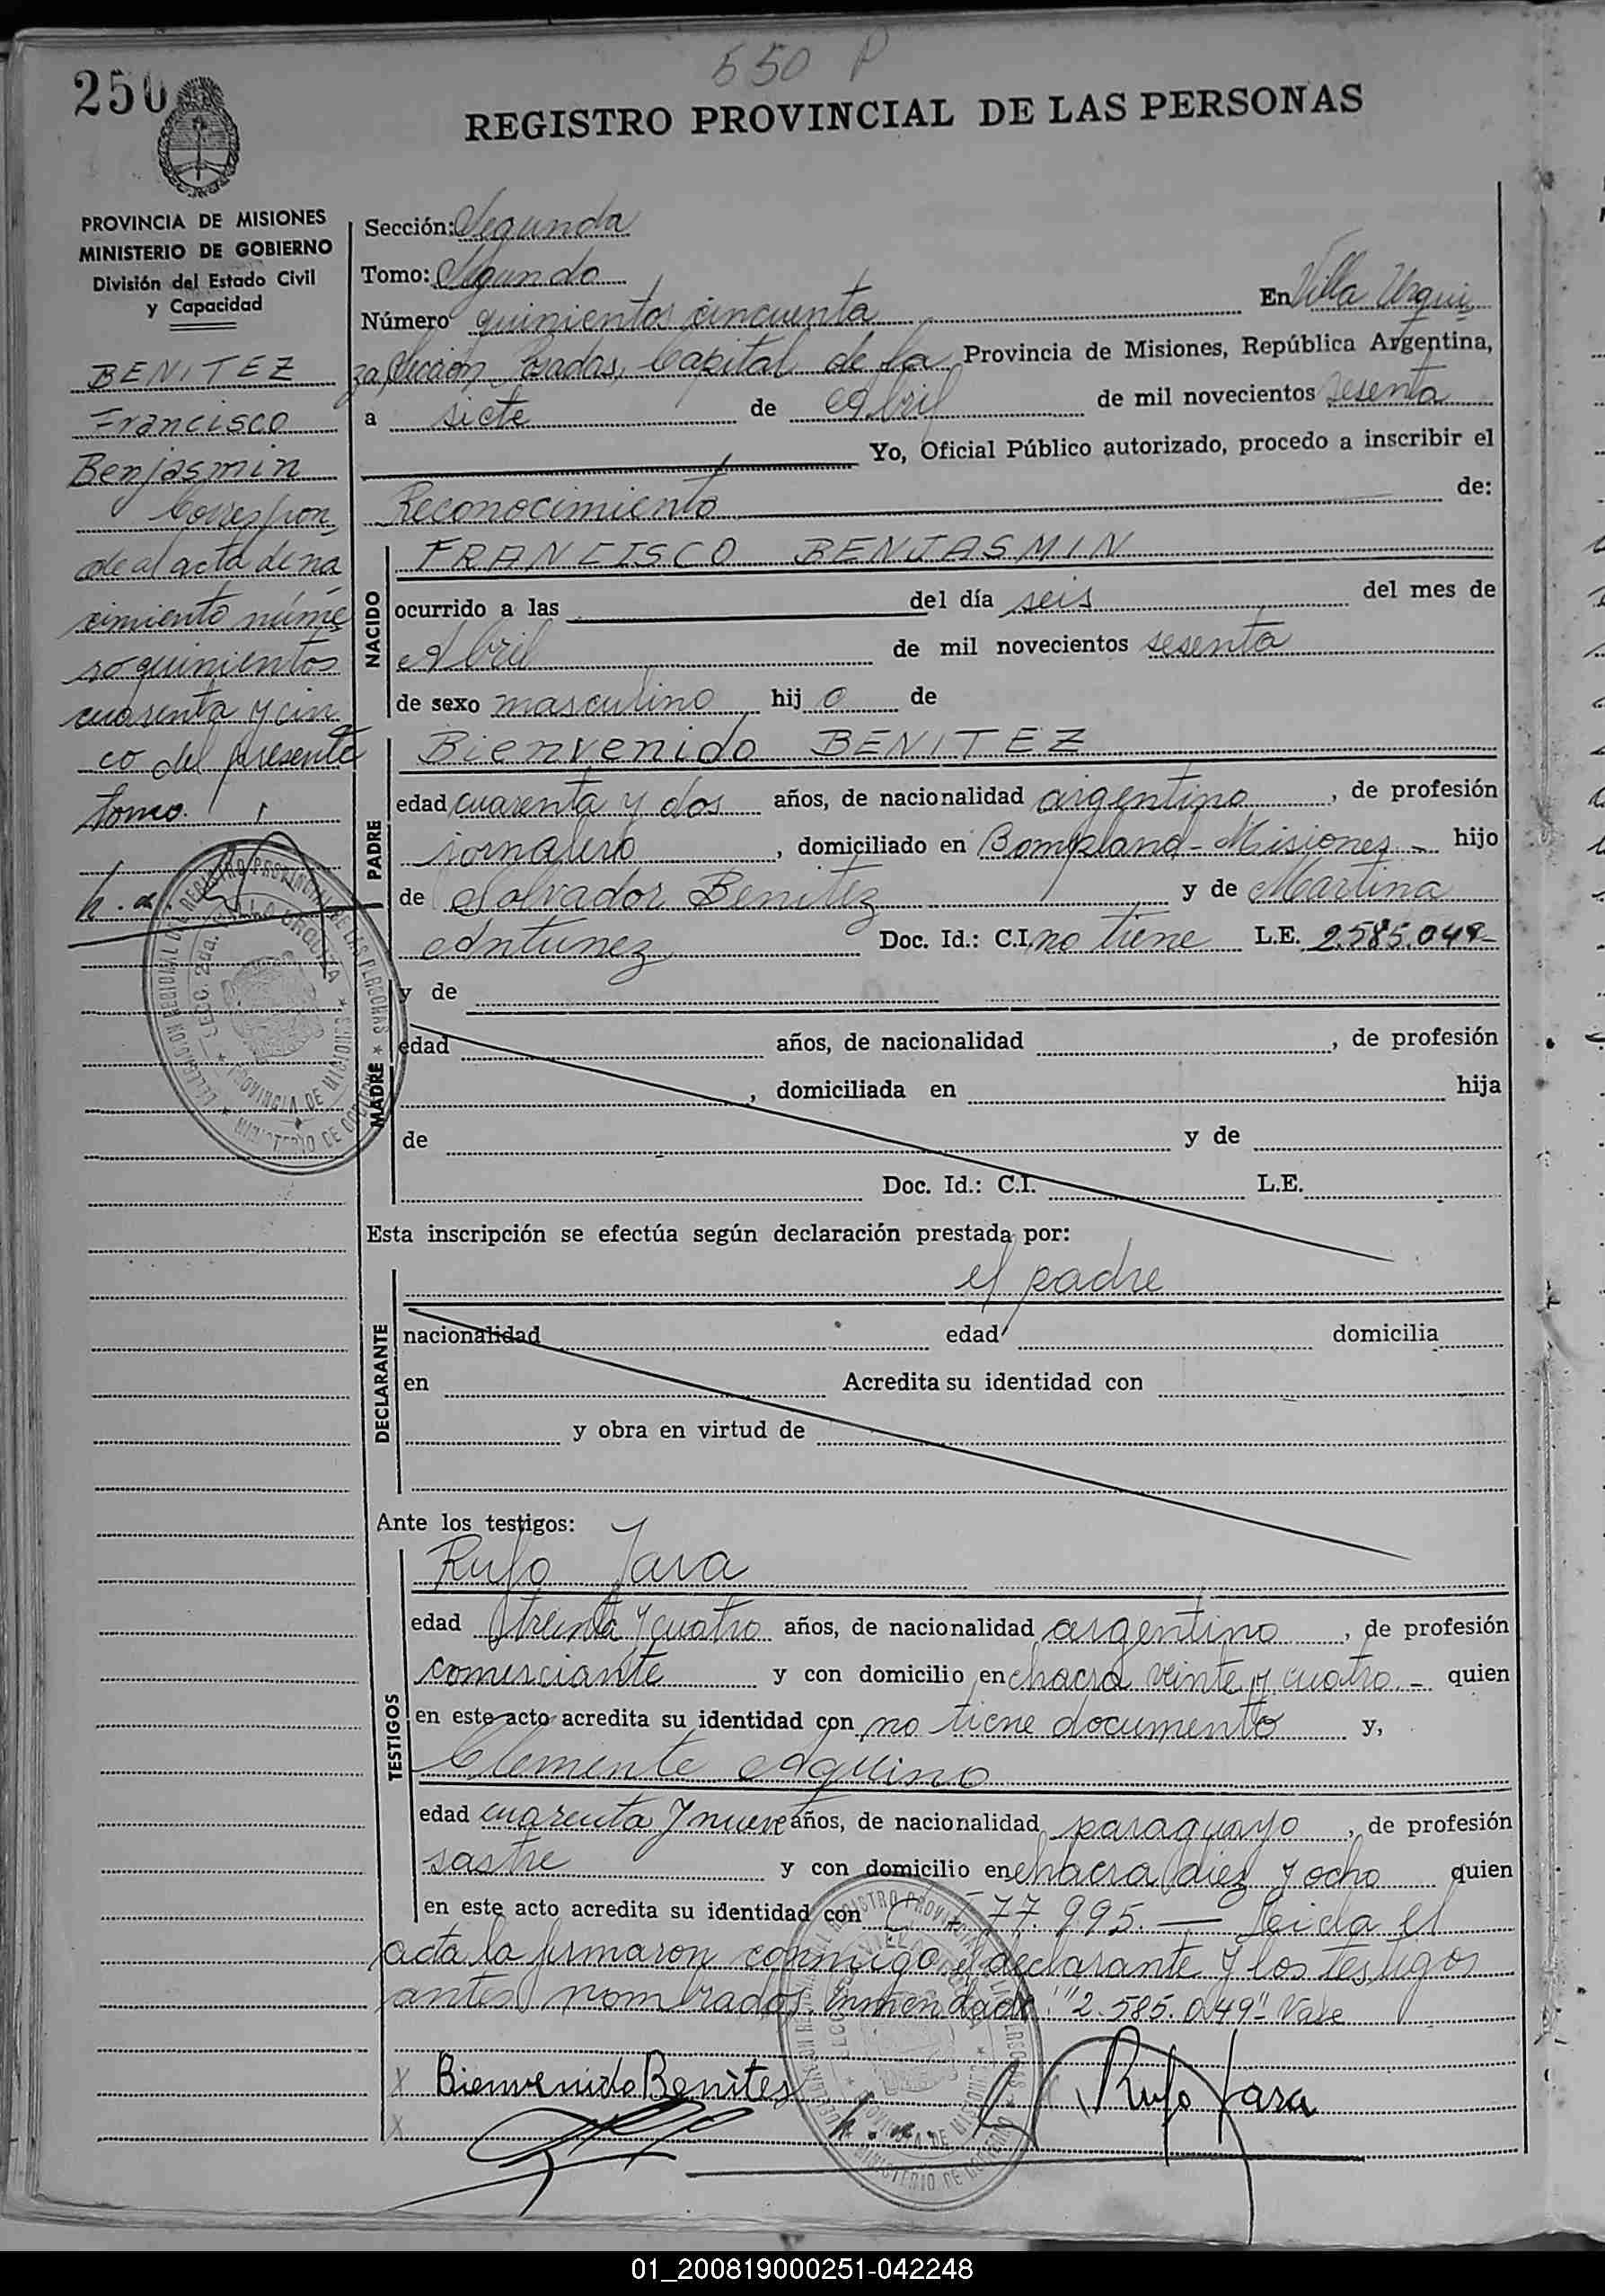 550 P
250
REGISTRO PROVINCIAL DE LAS PERSONAS
PROVINCIA DE MISIONES
MINISTERIO DE GOBIERNO
División del Estado Civil
y Capacidad
BENITEZ
Francisco
Benjasmin
Correspon
de al acta de na
cimiento núme
ro quinientos
cuarenta y cin
co del presente
tomo.
Sección: Segunda
Tomo: Segundo
Número quinientos cincuenta En Villa Urqui
za, Sección Posadas, Capital de la Provincia de Misiones, República Argentina,
a siete de Abril de mil novecientos sesenta
Yo, Oficial Público autorizado, procedo a inscribir el
Reconocimiento de:
NACIDO
FRANCISCO BENJASMIN
ocurrido a las del día seis del mes de
Abril de mil novecientos sesenta
de sexo masculino hij o de
PADRE
Bienvenido BENITEZ
edad cuarenta y dos años, de nacionalidad argentino, de profesión
jornalero, domiciliado en Bompland - Misiones - hijo
de Salvador Benitez y de Martina
Antunez Doc. Id.: C.I. no tiene L.E. 2.585.049-
MADRE
y de
edad años, de nacionalidad , de profesión
, domiciliada en hija
de y de
Doc. Id.: C.I. L.E.
Esta inscripción se efectúa según declaración prestada por:
el padre
DECLARANTE
nacionalidad edad domicilia
en Acredita su identidad con
y obra en virtud de
Ante los testigos:
TESTIGOS
Rufo Jara
edad treinta y cuatro años, de nacionalidad argentino, de profesión
comerciante y con domicilio en chacra veinte y cuatro - quien
en este acto acredita su identidad con no tiene documento y,
Clemente Aquino
edad cuarenta y nueve años, de nacionalidad paraguayo, de profesión
sastre y con domicilio en chacra diez y ocho quien
en este acto acredita su identidad con C I 77.995. — Leida el
acta la firmaron conmigo el declarante y los testigos
antes nombrados. Enmendado: "2.585.049" Vale
X Bienvenido Benites
Rufo Jara
X
01_200819000251-042248